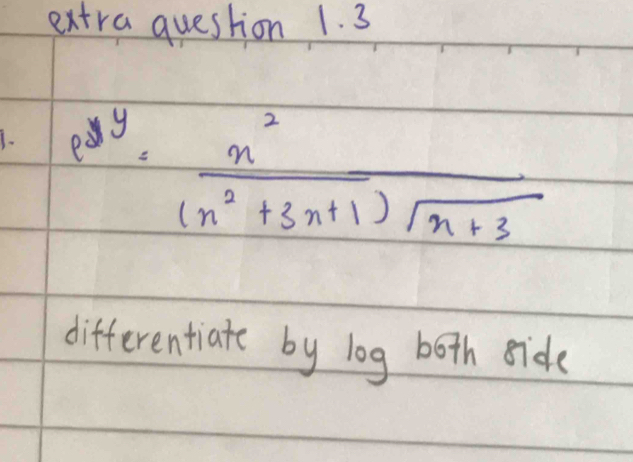 extra question 1.3
1. e^y = n^2
(n^2 + 3n + 1) √n + 3
differentiate by log both side